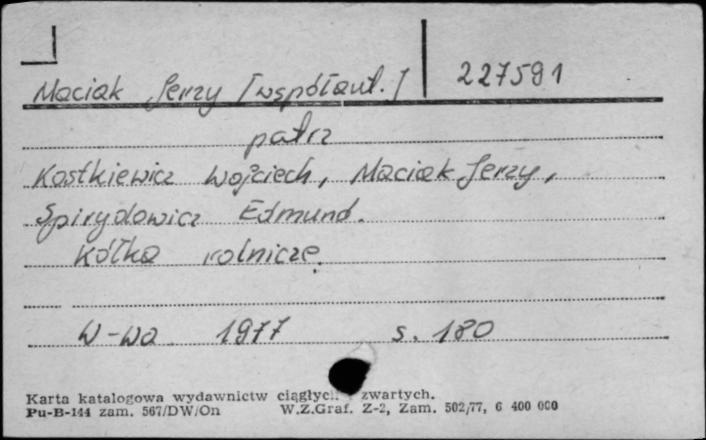 Maciak Jerzy [współaut.] 227591
patrz
Kostkiewicz Wojciech, Maciak Jerzy,
Spirydowicz Edmund.
Kółka rolnicze.
W-wa 1977 s. 180
Karta katalogowa wydawnictw ciągłyc zwartych.
Pu-B-144 zam. 567/DW/On W.Z.Graf. Z-2, Zam. 502/77, 6 400 000